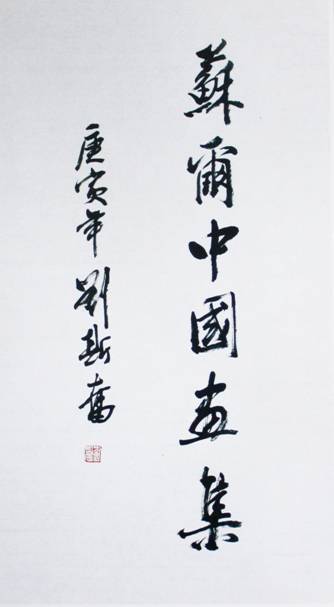 蘇爾中國畫集
庚寅年 劉斯奮